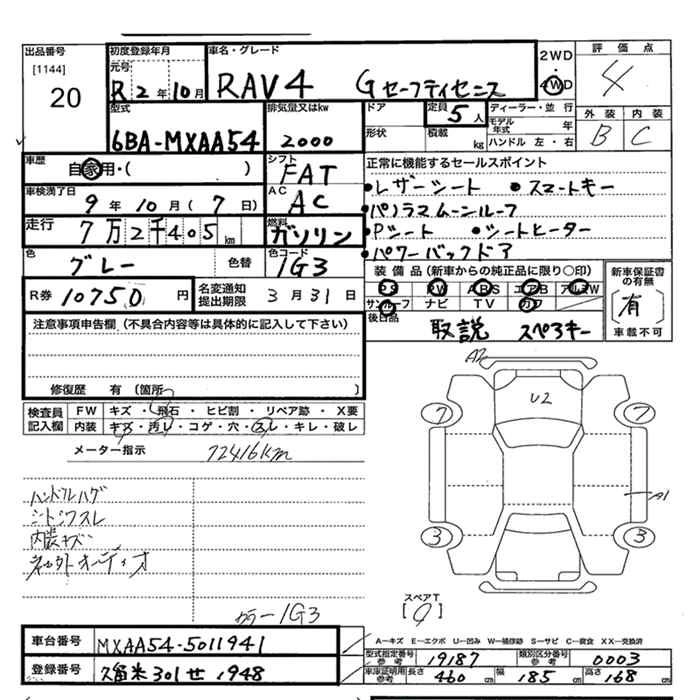 出品番号
[1144]
20
初度登録年月
元号
R 2 年 10 月
車名・グレード
RAV4 Gセーフティセンス
2WD
・
4WD
評価点
4
外装 内装
B C
型式
6BA-MXAA54
排気量又はkw
2000
ドア
定員
5 人
形状
積載
kg
ディーラー・並 行
モデル年式 年
ハンドル 左・右
車歴
自家用・( )
シフト
FAT
正常に機能するセールスポイント
・レザーシート ・スマートキー
・パノラマムーンルーフ
・Pシート ・シートヒーター
・パワーバックドア
車検満了日
9 年 10 月 ( 7 日)
AC
AC
走行
7万2千405 km
燃料
ガソリン
色
グレー
色替
色コード
1G3
装備品(新車からの純正品に限り○印)
PS PW ABS エアB アルミW
サンルーフ ナビ TV カワ
新車保証書の有無
〔有〕
車載不可
R券 10750 円
名変通知
提出期限
3 月 31 日
後日品
取説 スペアキー
注意事項申告欄(不具合内容等は具体的に記入して下さい)
修復歴 有〔箇所 〕
検査員
記入欄
FW キズ・飛石・ヒビ割・リペア跡・X要
内装 キズ・汚レ・コゲ・穴・スレ・キレ・破レ
メーター指示 72416km
ハンドルハゲ
シートシワスレ
内装キズ
ネック外オーディオ
カラー1G3
A2
U2
7
7
A1
3
3
スペアT
[9]
車台番号 MXAA54-5011941
登録番号 久留米301せ1948
A―キズ E―エクボ U―凹み W―補修跡 S―サビ C―腐食 XX―交換済
型式指定番号
参考
19187
類別区分番号
参考
0003
車庫証明用
参考
長さ 460 cm 幅 185 cm 高さ 168 cm